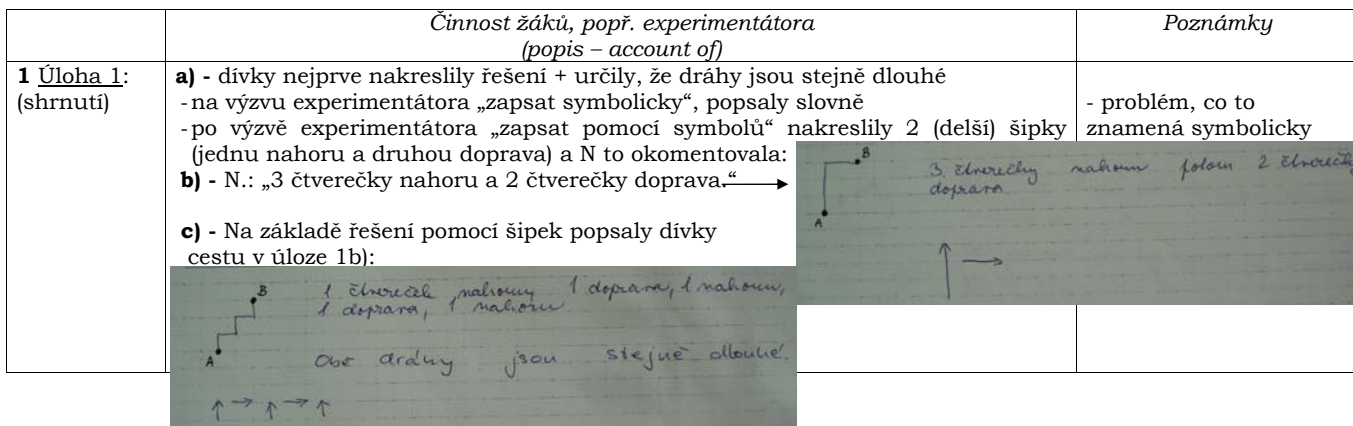 Činnost žáků, popř. experimentátora
(popis – account of)
Poznámky
1 Úloha 1:
(shrnutí)
a) - dívky nejprve nakreslily řešení + určily, že dráhy jsou stejně dlouhé
- na výzvu experimentátora „zapsat symbolicky“, popsaly slovně
- po výzvě experimentátora „zapsat pomocí symbolů“ nakreslily 2 (delší) šipky
(jednu nahoru a druhou doprava) a N to okomentovala:
b) - N.: „3 čtverečky nahoru a 2 čtverečky doprava.“
c) - Na základě řešení pomocí šipek popsaly dívky
cestu v úloze 1b):
- problém, co to
znamená symbolicky
B
3 čtverečky nahoru potom 2 čtverečky
doprava.
A
↑ →
B
1 čtvereček nahoru, 1 doprava, 1 nahoru,
1 doprava, 1 nahoru.
A
Obě dráhy jsou stejně dlouhé.
↑ → ↑ → ↑